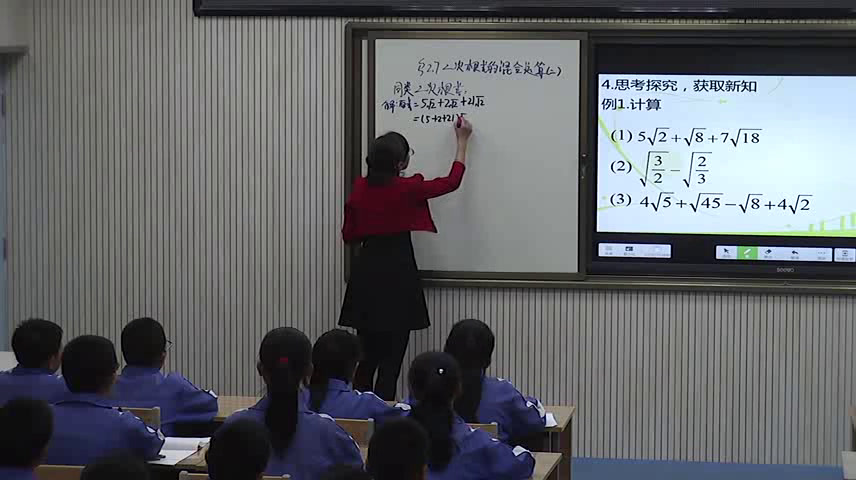 §2.7二次根式的混合运算(二)
同类二次根式:
解:原式=5√2+2√2+21√2
=(5+2+21)√
4.思考探究，获取新知
例1.计算
(1) 5√2+√8+7√18
(2) √(3/2)−√(2/3)
(3) 4√5+√45−√8+4√2